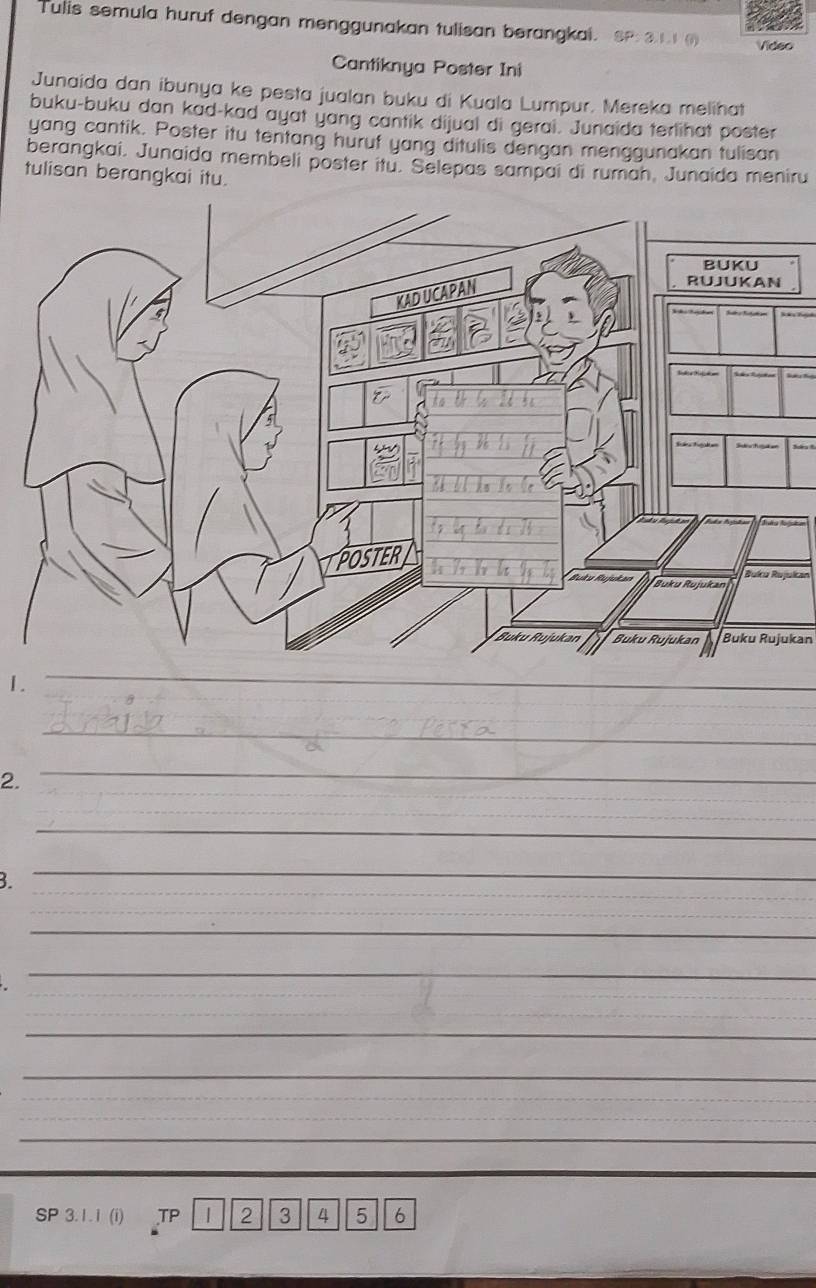 Tulis semula huruf dengan menggunakan tulisan berangkai. SP: 3.1.1 (i)
Video
Cantiknya Poster Ini
Junaida dan ibunya ke pesta jualan buku di Kuala Lumpur. Mereka melihat
buku-buku dan kad-kad ayat yang cantik dijual di gerai. Junaida terlihat poster
yang cantik. Poster itu tentang huruf yang ditulis dengan menggunakan tulisan
berangkai. Junaida membeli poster itu. Selepas sampai di rumah, Junaida meniru
tulisan berangkai itu.
BUKU
RUJUKAN
KAD UCAPAN
POSTER
Buku Rujukan
Buku Rujukan
Buku Rujukan
Buku Rujukan
Buku Rujukan
Buku Rujukan
1.
pesta
2.
3.
SP 3.1.1 (i) TP 1 2 3 4 5 6